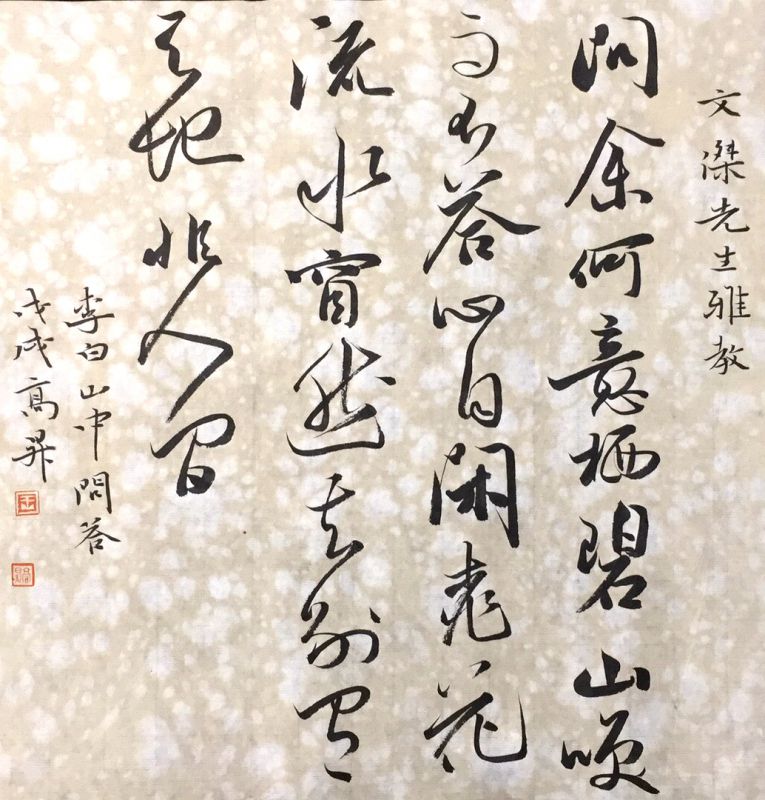 文傑先生雅教
問余何意栖碧山咲
而不答心自閑桃花
流水窅然去別有
天地非人間
李白山中問答
戊戌高昇